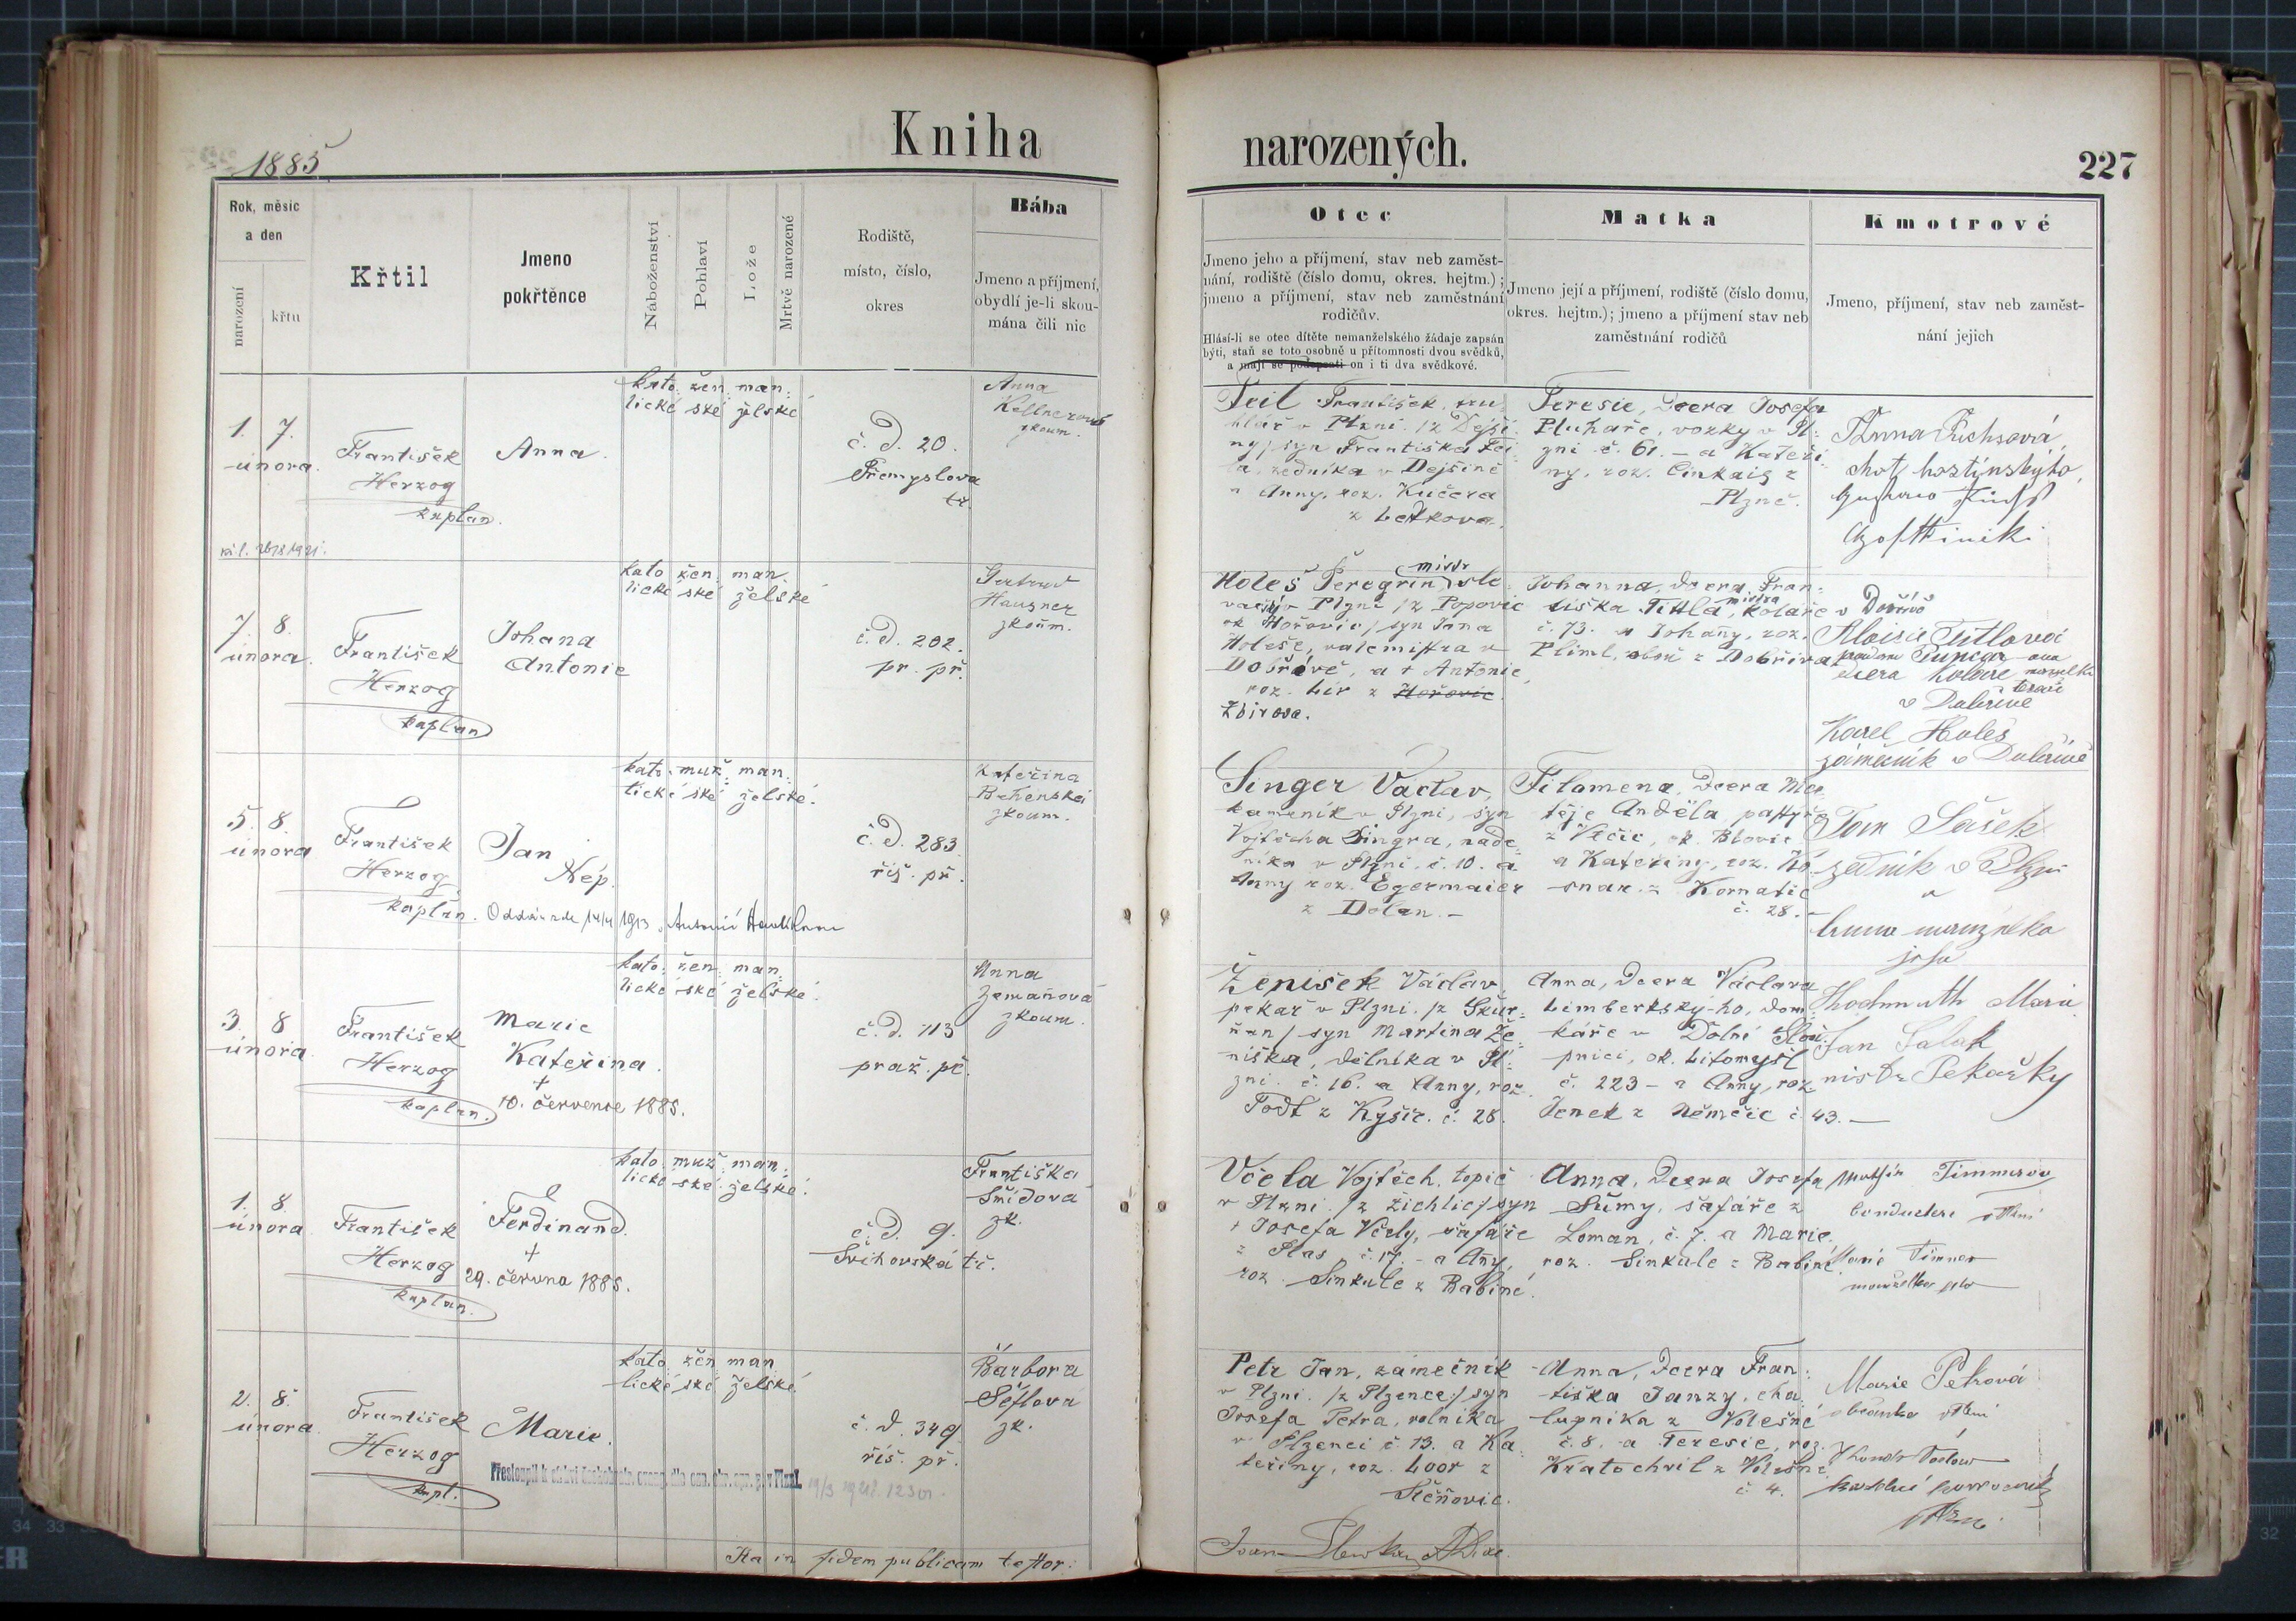 1885
Kniha
narozených.
227
Rok, měsíc
a den
narození
křtu
Křtil
Jmeno
pokřtěnce
Náboženství
Pohlaví
Lože
Mrtvě narozené
Rodiště,
místo, číslo,
okres
Bába
Jmeno a příjmení,
obydlí je-li skou-
mána čili nic
Otec
Jmeno jeho a příjmení, stav neb zaměst-
nání, rodiště (číslo domu, okres. hejtm.);
jmeno a příjmení, stav neb zaměstnání
rodičův.
Hlásí-li se otec dítěte nemanželského žádaje zapsán
býti, staň se toto osobně u přítomnosti dvou svědků,
a mají se podepsati on i ti dva svědkové.
Matka
Jmeno její a příjmení, rodiště (číslo domu,
okres. hejtm.); jmeno a příjmení stav neb
zaměstnání rodičů
Kmotrové
Jmeno, příjmení, stav neb zaměst-
nání jejich
1. 7.
února.
František
Herzog
kaplan.
Anna.
kato. žen. man.
lické ské želské
č. d. 20.
Přemyslova
tř.
Anna
Kellnerová
zkoum.
Feil František, tru-
hlář v Plzni. /z Dejší-
ny/ syn Františka Fei-
la, zedníka v Dejšině
a Anny, roz. Kučera
z Letkova.
Teresie, dcera Josefa
Pluhaře, vozky v Pl-
zni č. 61. – a Kateři-
ny, roz. Cinkaiz z
Plzně.
Anna Fuchsová
choť hostinského
7. 8.
února.
František
Herzog
kaplan
Johana
Antonie
kato. žen. man.
lické ské želské
č. d. 202.
pr. př.
Hausner
zkoum.
Holeš Peregrin, mistr sle-
vač v Plzni /z Popovic
ok Hořovic/ syn Jana
Holeše, valcmistra v
Dobřívě, a + Antonie,
roz. Lir z Hořovic.
Zbirova.
Johanna, dcera Fran-
tiška Tittla, mistra koláře v Dobřívě
č. 73. a Johany, roz.
Pliml, obou z Dobříva
Aloisie Titlová
dcera koláře
v Dobřívě
Karel Holeš
zámečník v Dobřívě
5. 8.
února
František
Herzog
kaplan.
Jan
Nep.
Oddán zde 14/4 1913 s Antonií Havlíkovou
kato. muž. man.
lické ské želské.
č. d. 283
říš. př.
Kateřina
zkoum.
Singer Václav,
kameník v Plzni, syn
Vojtěcha Singra, náde-
níka v Plzni č. 10. a
Anny roz. Egermaier
z Dolan. –
Filomena, dcera Ma-
těje Anděla, pastýře
z Vlčic, ok. Blovic
a Kateřiny, roz. Ko-
snar z Kornatic
č. 28. –
Jan Šašek
zedník v Plzni
a
Anna manželka
jeho
3. 8
února
František
Herzog
kaplan.
Marie
Kateřina.
+
10. července 1885.
kato. žen. man.
lické ské želské.
č. d. 113
praž. př.
Anna
Zemanová
zkoum.
Ženíšek Václav,
pekař v Plzni. /z Skur-
ňan/ syn Martina Že-
níška, dělníka v Pl-
zni. č. 16. a Anny, roz.
Todt z Kyšic. č. 28.
Anna, dcera Václava
Limberkský-ho, dom-
káře v Dolní Slou-
pnici, ok. Litomyšl
č. 223 – a Anny, roz.
Jenek z Němčic č. 43. –
Hochmuth Marie
Jan Salak
mistr Pekařský
1. 8.
února
František
Herzog
kaplan.
Ferdinand.
+
29. června 1885.
kato. muž. man.
lické ské želské.
č. d. 9.
Švihovská tř.
Františka
Šmídová
zk.
Včela Vojtěch, topič
v Plzni. /z Žichlic/ syn
+ Josefa Včely, šafáře
z Plas č. 17. – a Any,
roz. Sinkule z Babiné.
Anna, dcera Josefa
Šůmy, šafáře z
Loman, č. 7. a Marie,
roz. Sinkule z Babiné
Marie Timmer
manželka jeho
2. 8.
února.
František
Herzog
kapl.
Marie.
kato. žen. man.
lické ské želské
č. d. 349
říš. př.
Barbora
Šéflová
zk.
Petr Jan, zámečník
v Plzni. /z Plzence/ syn
Josefa Petra, rolníka
v Plzenci č. 13. a Ka-
teřiny, roz. Loor z
Štěnovic.
Anna, dcera Fran-
tiška Janzy, cha-
lupníka z Volešné
č. 8. a Teresie, roz.
Kratochvil z Volešné
č 4.
Marie Petrová
Ita in fidem publicam testor: